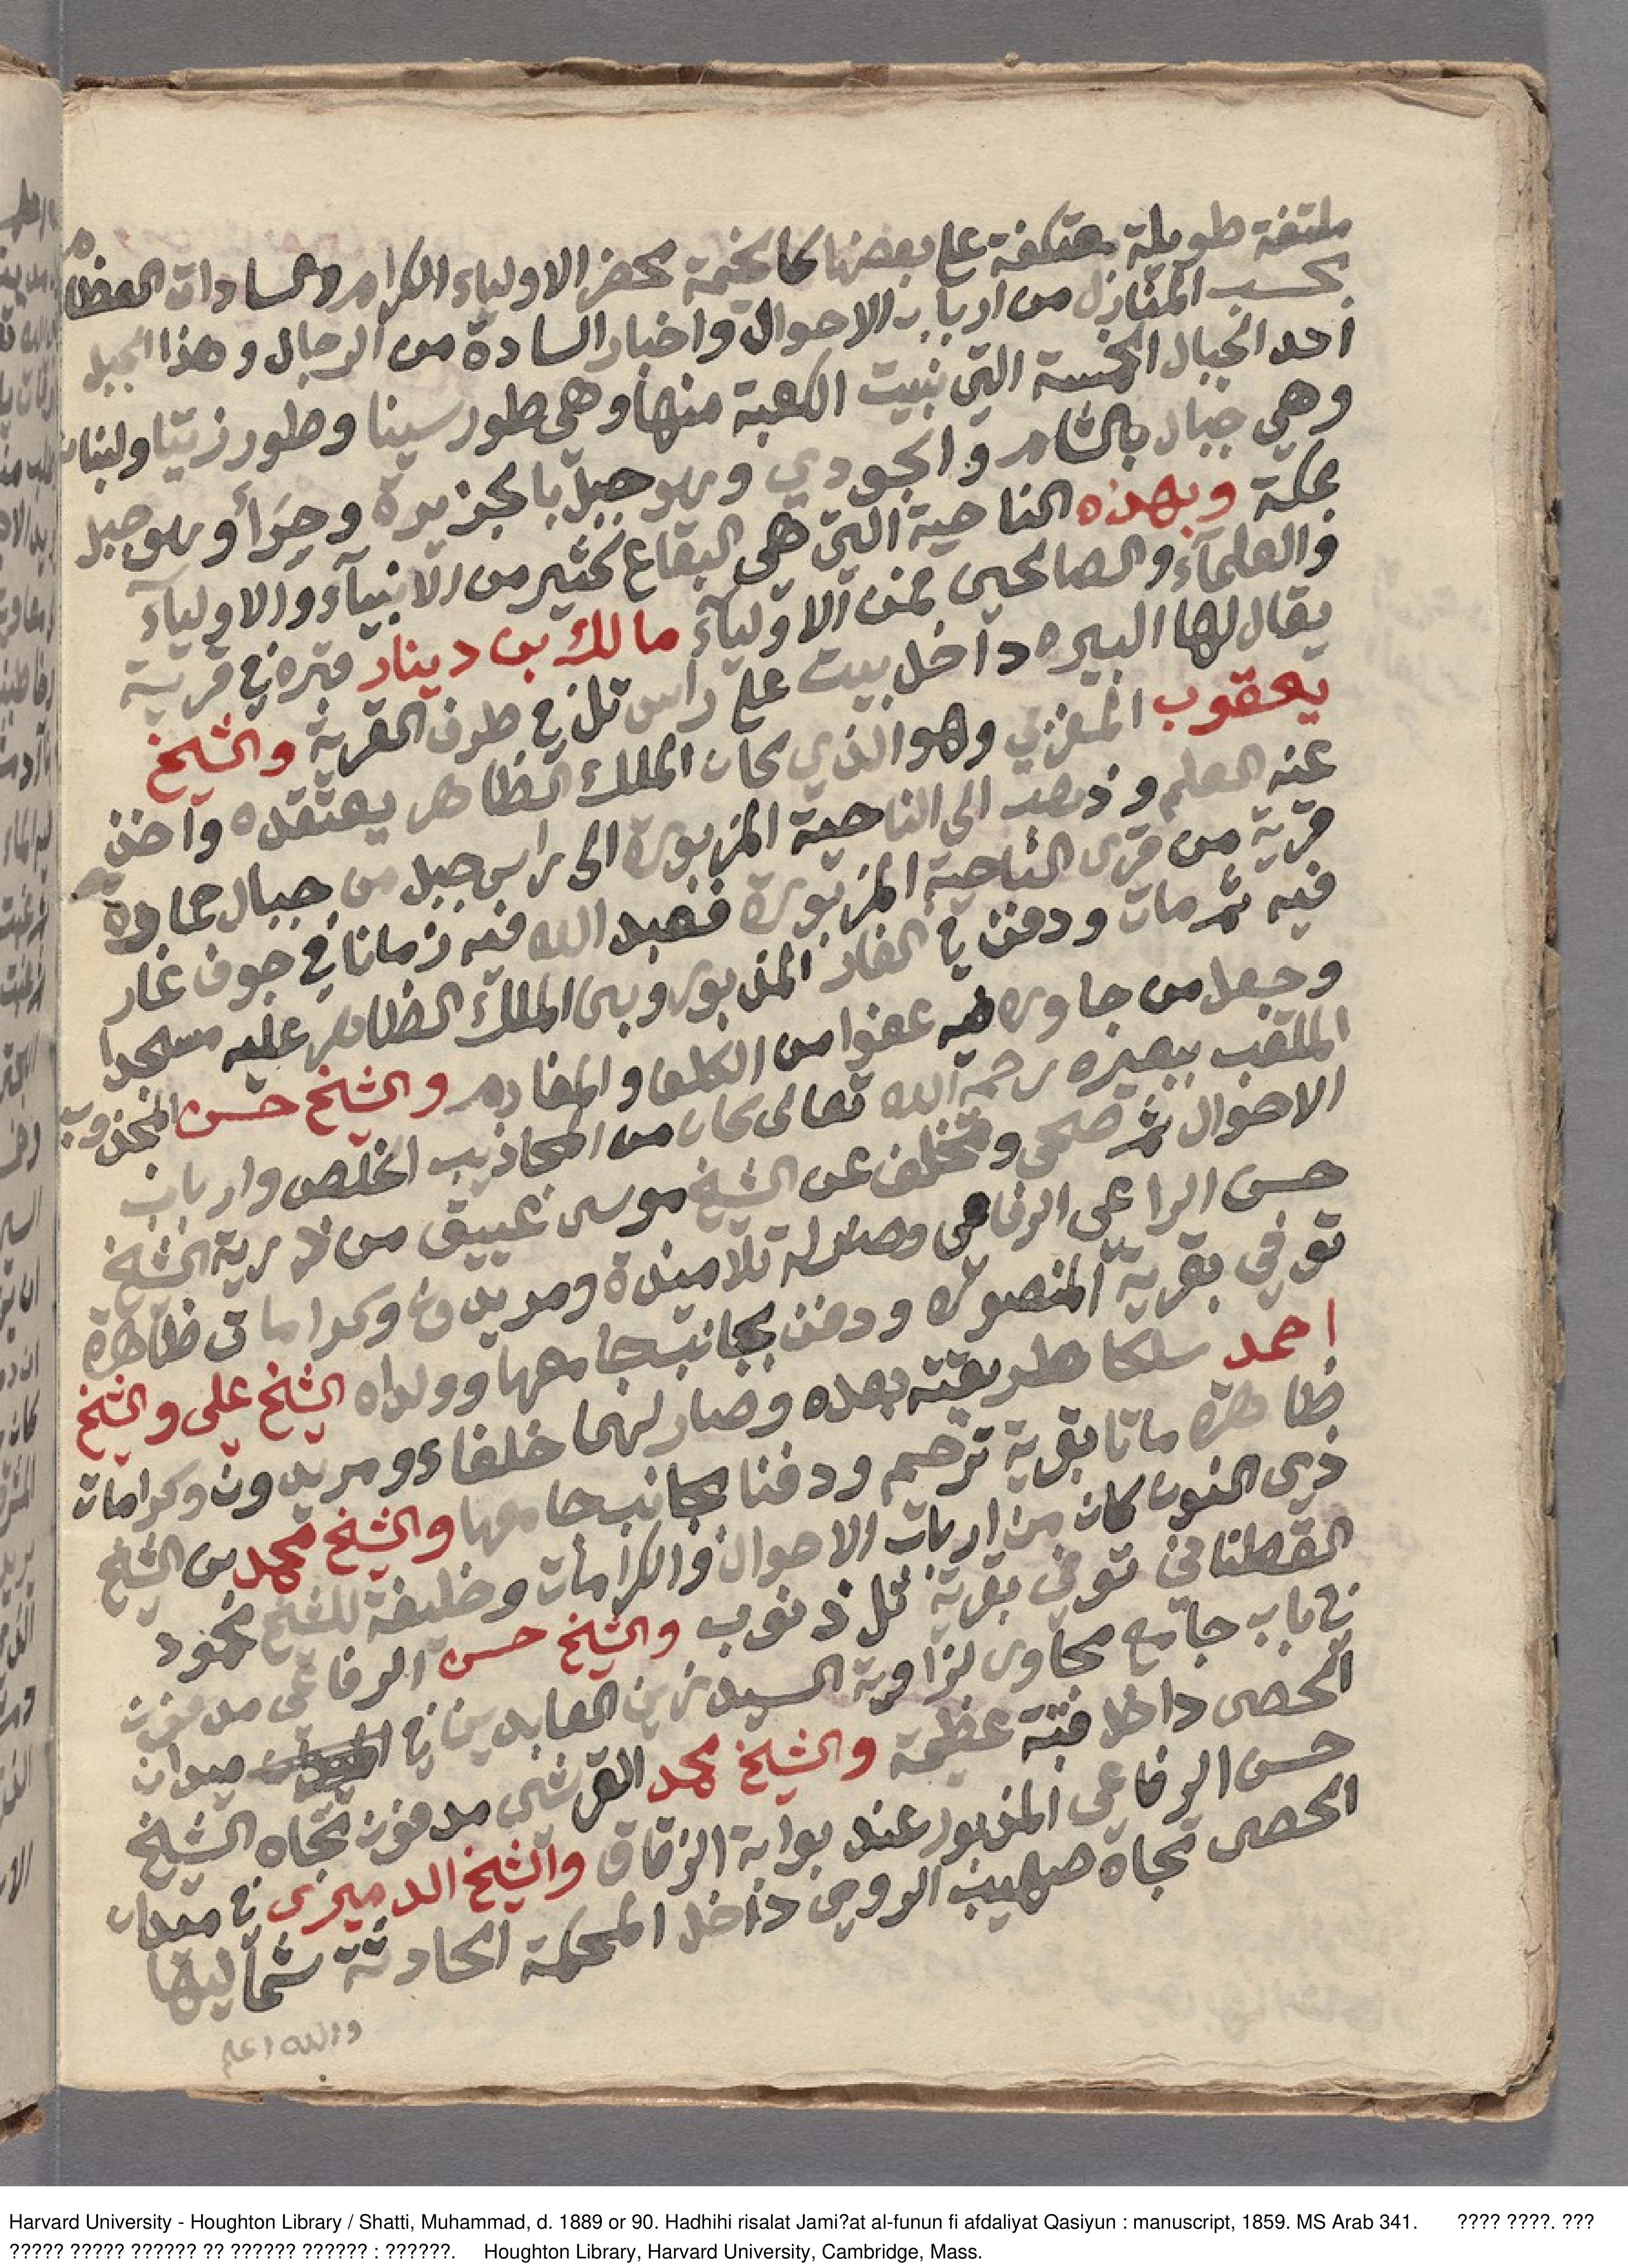 ملتفة طويلة معتكفة على بعضها كالخيمة تحضر الاولياء الكرام والسادات العظام
بحسب المنازل من ارباب الاحوال واخبار السادة من الرجال وهذا الجبل
احد الجبال الخمسة التي بنيت الكعبة منها وهي طور سينا وطور زيتا ولبنان
وهي جبال بالشام والجودي وهو جبل بالجزيرة وحرأ وهو جبل
بمكة وبهذه الناحية التي هي البقاع كثير من الانبيآء والاوليآء
والعلمآء والصالحين فمن الاوليآء مالك بن دينار قبره في قرية
يقال لها البيره داخل بيت على راس تل في طرف القرية والشيخ
يعقوب المغربي وهو الذي كان الملك الظاهر يعتقده واخذ
عنه العلم وذهب الى الناحية المزبورة الى راس جبل من جبال حماره
قرية من قرى الناحية المزبورة فعبد الله فيه زمانا في جوف غار
فيه ثم مات ودفن في الغار المزبور وبنى الملك الظاهر عليه مسجدا
وجعل من جاوره فيه عفوا من الكلف والمغارم والشيخ حسن المجذوب
الملقب ببعيره رحمه الله تعالى كان من المجاذيب الخلص وارباب
الاحوال ثم صحى وتخلف عن الشيخ موسى غييق من ذرية الشيخ
حسن الراعي الرفاعي وصار له تلاميذة ومريدون وكرامات ظاهرة
توفي بقرية المنصوره ودفن بجانب جامعها وولداه الشيخ على والشيخ
احمد سلكا طريقته بعده وصار لهما خلفاء ومريدون وكرامات
ظاهرة ماتا بقرية ترحم ودفنا بجانب جامعها والشيخ محمد بن الشيخ
ذي النون كان من ارباب الاحوال والكرامات وخليفة للشيخ محمود
القطنافي توفي بقرية تل ذنوب والشيخ حسن الرفاعي مدفون
في باب جامع مجاور لزاوية السيد زين العابدين في ميدان
الحصى داخل قبة عظيمة والشيخ محمد القرشي مدفون تجاه الشيخ
حسن الرفاعي المزبور عند بوابة الزقاق والشيخ الدميري في ميدان
الحصى تجاه صهيب الرومي داخل المحكمة الحادثة شماليها
والله اعلم
Harvard University - Houghton Library / Shatti, Muhammad, d. 1889 or 90. Hadhihi risalat Jami?at al-funun fi afdaliyat Qasiyun : manuscript, 1859. MS Arab 341. ???? ????. ???
????? ????? ?????? ?? ?????? ?????? : ??????. Houghton Library, Harvard University, Cambridge, Mass.